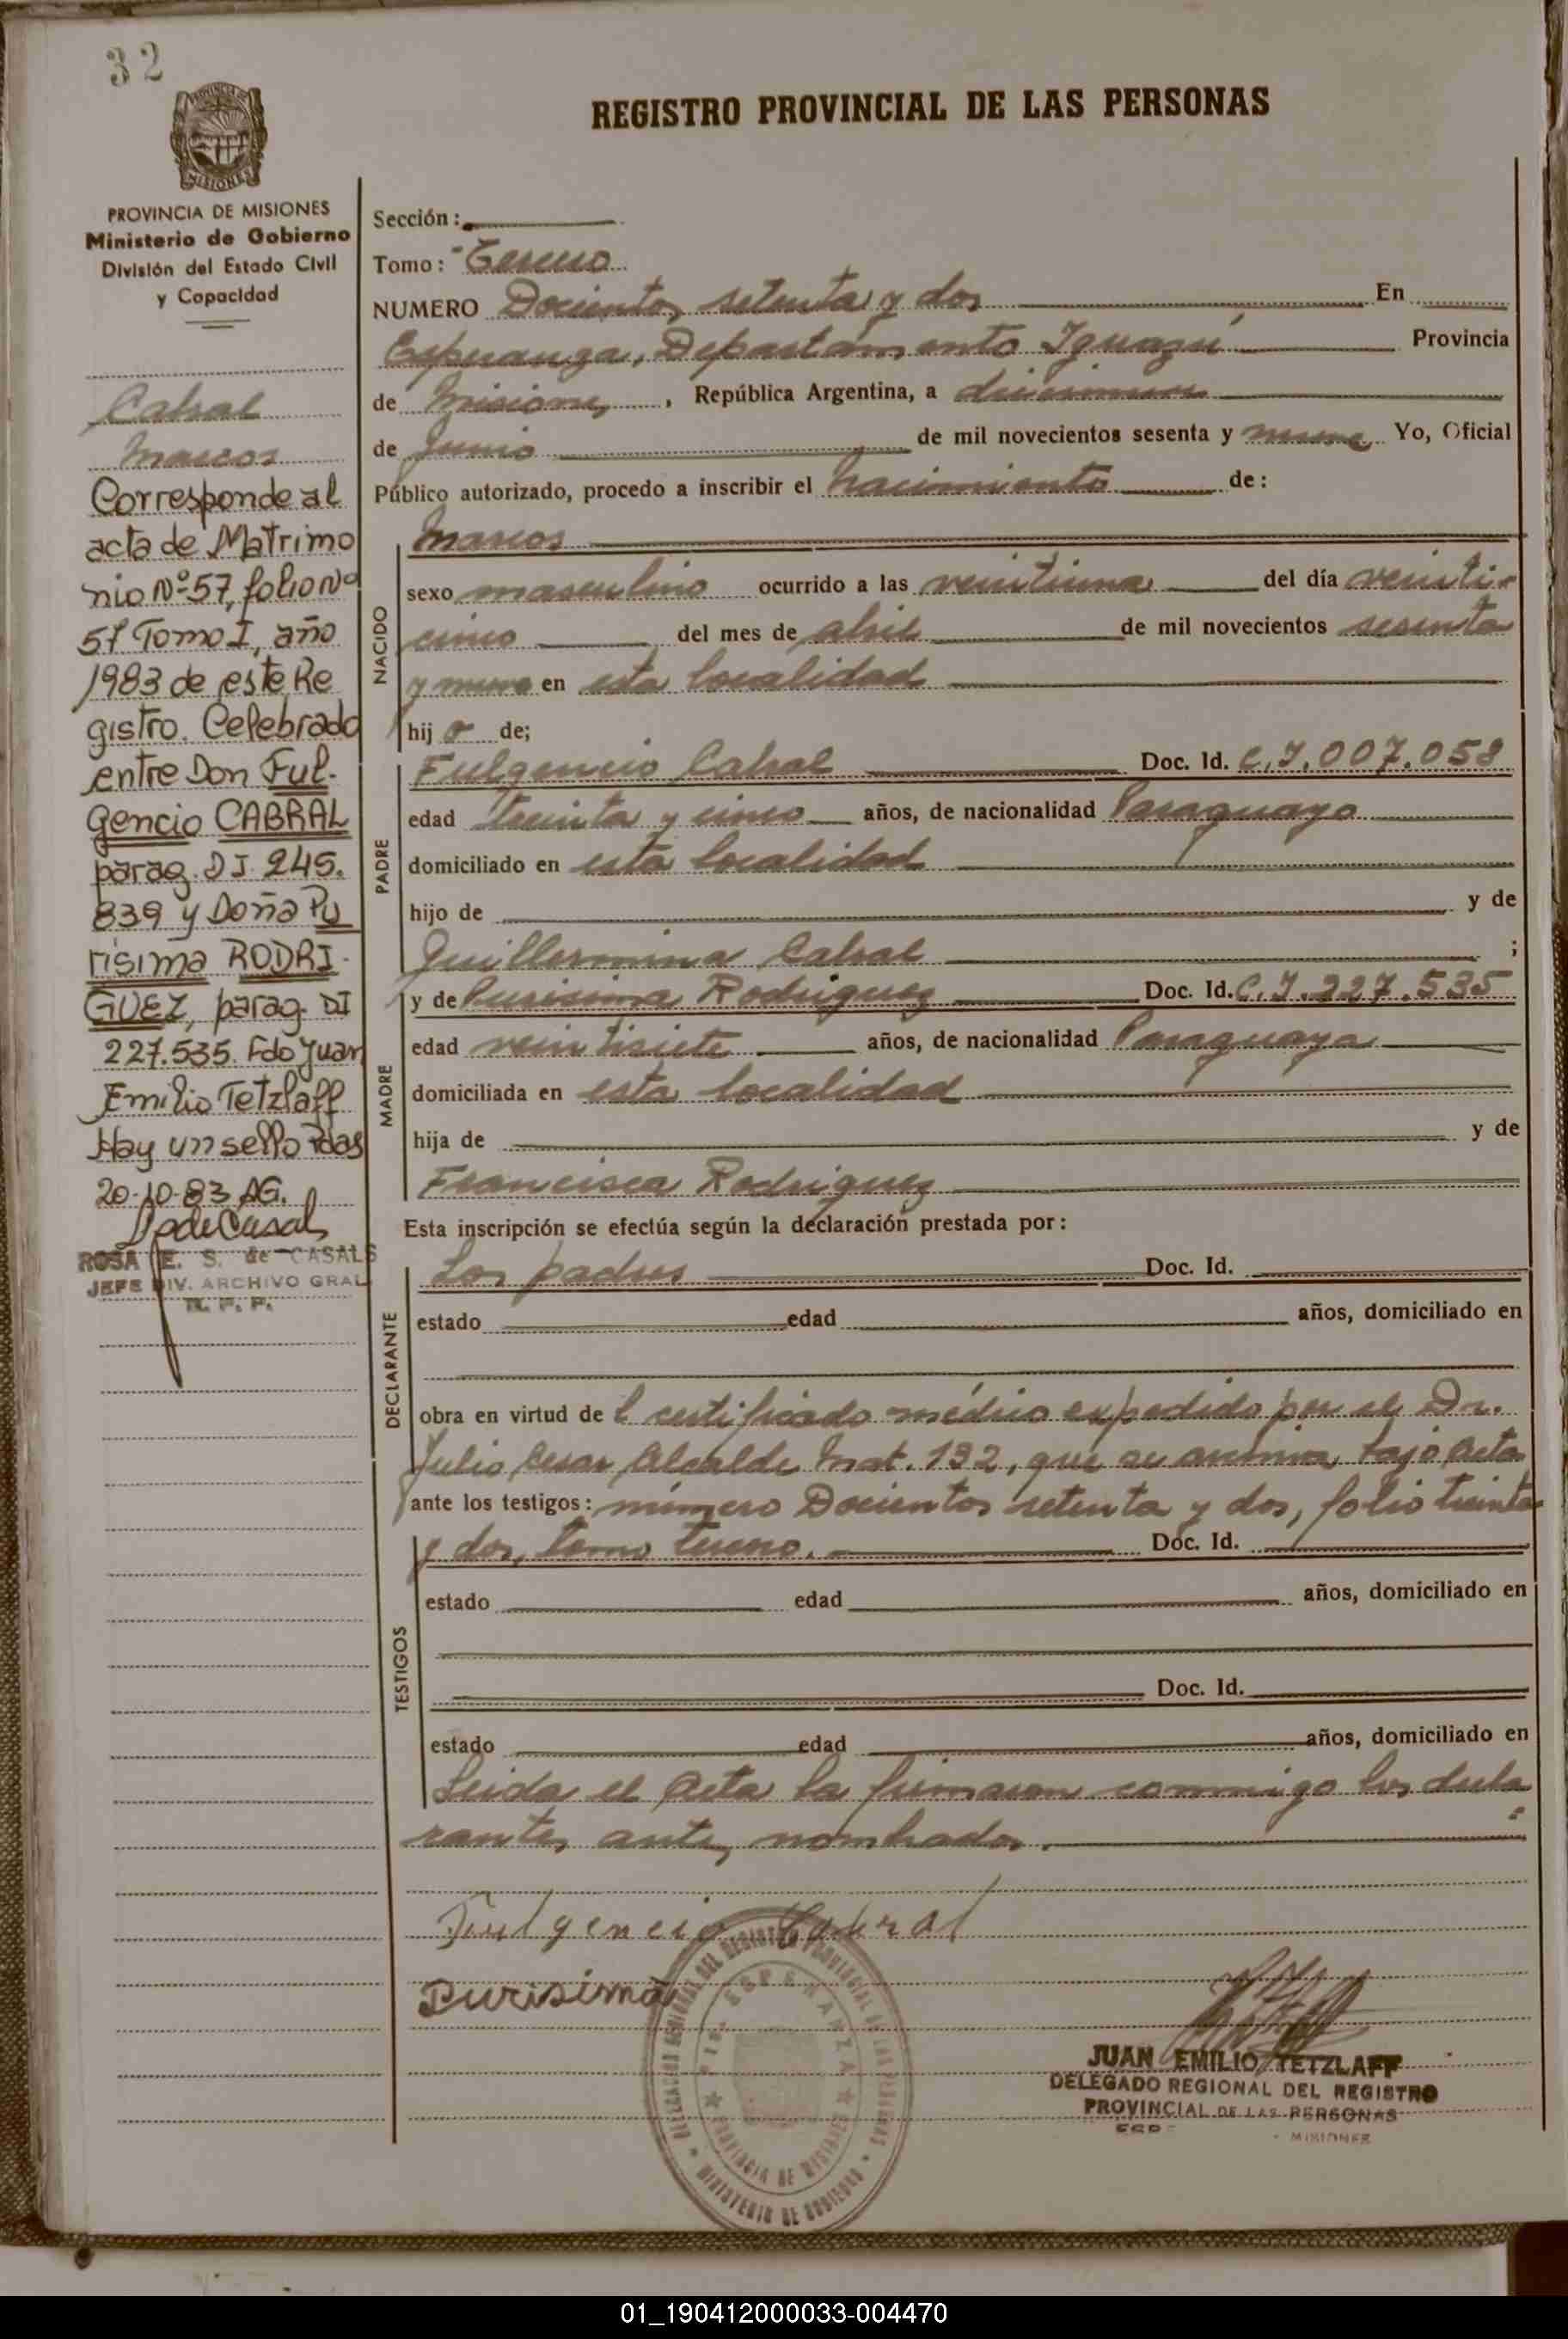 32
REGISTRO PROVINCIAL DE LAS PERSONAS
MISIONES
PROVINCIA DE MISIONES
Ministerio de Gobierno
División del Estado Civil
y Capacidad
Cabral
Marcos
Corresponde al
acta de Matrimo
nio Nº 57, folio Nº
57 Tomo I, año
1983 de este Re
gistro. Celebrado
entre Don Ful-
gencio CABRAL
parag. DI. 245.
839 y Doña Pu
rísima RODRI-
GUEZ, parag. DI
227.535. Fdo Juan
Emilio Tetzlaff
Hay un sello Pdas
20-10-83 AG.
ROSA E. S. de CASALS
JEFE DIV. ARCHIVO GRAL
R. P. P.
Sección:
Tomo: Tercero
NUMERO Docientos setenta y dos En
Esperanza, Departamento Iguazú Provincia
de Misiones, República Argentina, a diecinueve
de Junio de mil novecientos sesenta y nueve Yo, Oficial
Público autorizado, procedo a inscribir el nacimiento de:
Marcos
NACIDO
sexo masculino ocurrido a las veintiuna del día veinti-
cinco del mes de abril de mil novecientos sesenta
y nueve en esta localidad
hij o de;
PADRE
Fulgencio Cabral Doc. Id. C.I. 007.058
edad treinta y cinco años, de nacionalidad Paraguayo
domiciliado en esta localidad
hijo de y de
Guillermina Cabral ;
MADRE
y de Purisima Rodriguez Doc. Id. C.I. 227.535
edad veintisiete años, de nacionalidad Paraguaya
domiciliada en esta localidad
hija de y de
Francisca Rodriguez
Esta inscripción se efectúa según la declaración prestada por:
DECLARANTE
Los padres Doc. Id.
estado edad años, domiciliado en
obra en virtud de l certificado médico expedido por el Dr.
Julio Cesar Alcalde Mat. 132, que se archiva bajo Acta
ante los testigos: número Docientos setenta y dos, folio treinta
y dos, tomo tercero. Doc. Id.
TESTIGOS
estado edad años, domiciliado en
Doc. Id.
estado edad años, domiciliado en
Leida el Acta la firmaron conmigo los decla
rantes antes nombrados.
Fulgencio Cabral
Purisima
DELEGACION REGIONAL DEL REGISTRO PROVINCIAL DE LAS PERSONAS
ESPERANZA
PROVINCIA DE MISIONES
MINISTERIO DE GOBIERNO
JUAN EMILIO TETZLAFF
DELEGADO REGIONAL DEL REGISTRO
PROVINCIAL DE LAS PERSONAS
ESP MISIONES
01_190412000033-004470